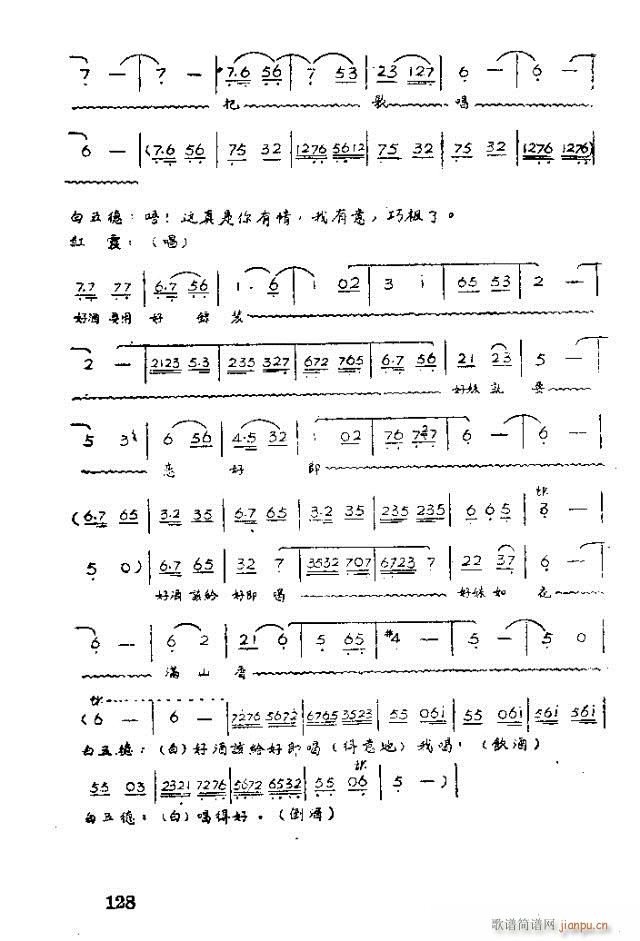 7 — 7 — 7.6 56 7 53 23 127 6 — 6 —
把 歌 唱
6 — (7.6 56 75 32 1276 5612 75 32 75 32 1276 1276)
白五德：唔！这真是你有情，我有意，巧极了。
红霞：（唱）
7.7 77 6.7 56 1. 6 1 02 3 i 65 53 2 —
好酒要用好 装
2 — 2123 5.3 235 327 672 765 6.7 56 21 23 5 —
好妹 要
5 3 6 56 4.5 32 1 02 76 7 6 — 6 —
恋 好 郎
(6.7 65 3.2 35 6.7 65 3.2 35 235 235 6 65 3 —
5 0) 6.7 65 32 7 3532 707 6723 7 22 37 6 —
好酒 給 好郎 喝 好妹如 花
6 — 6 2 21 6 5 65 #4 — 5 — 5 0
滿山香
(6 — 6 — 7276 5672 6765 3523 55 061 55 061 561 561
白五德：（白）好酒該給好郎喝（得意地）我喝！（飲酒）
55 03 2321 7276 5672 6532 55 06 5 —)
白五德：（白）喝得好。（倒酒）
128
歌谱简谱网 jianpu.cn